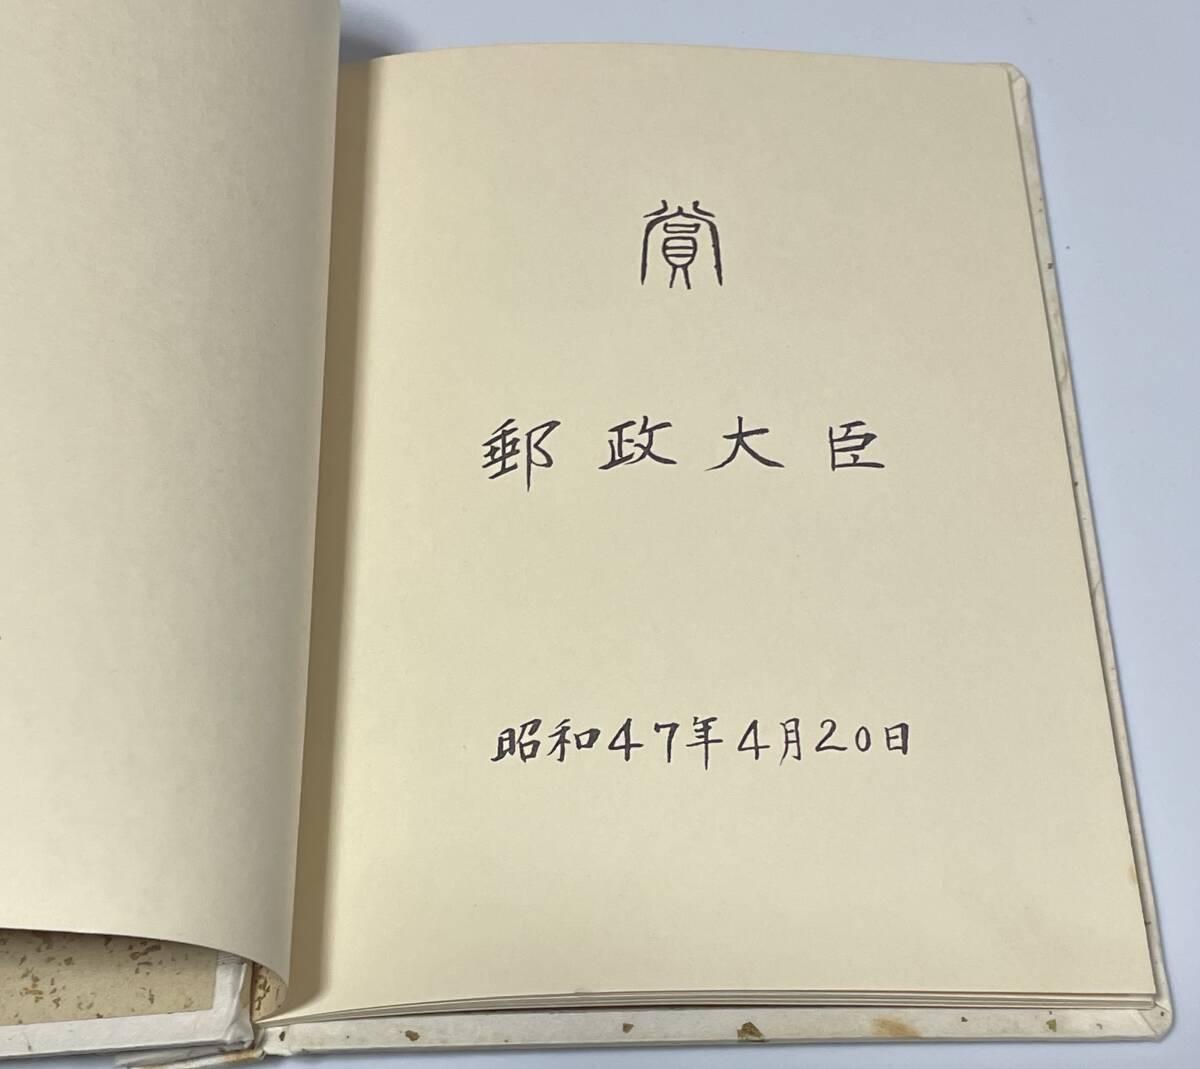 賞
郵政大臣
昭和47年4月20日